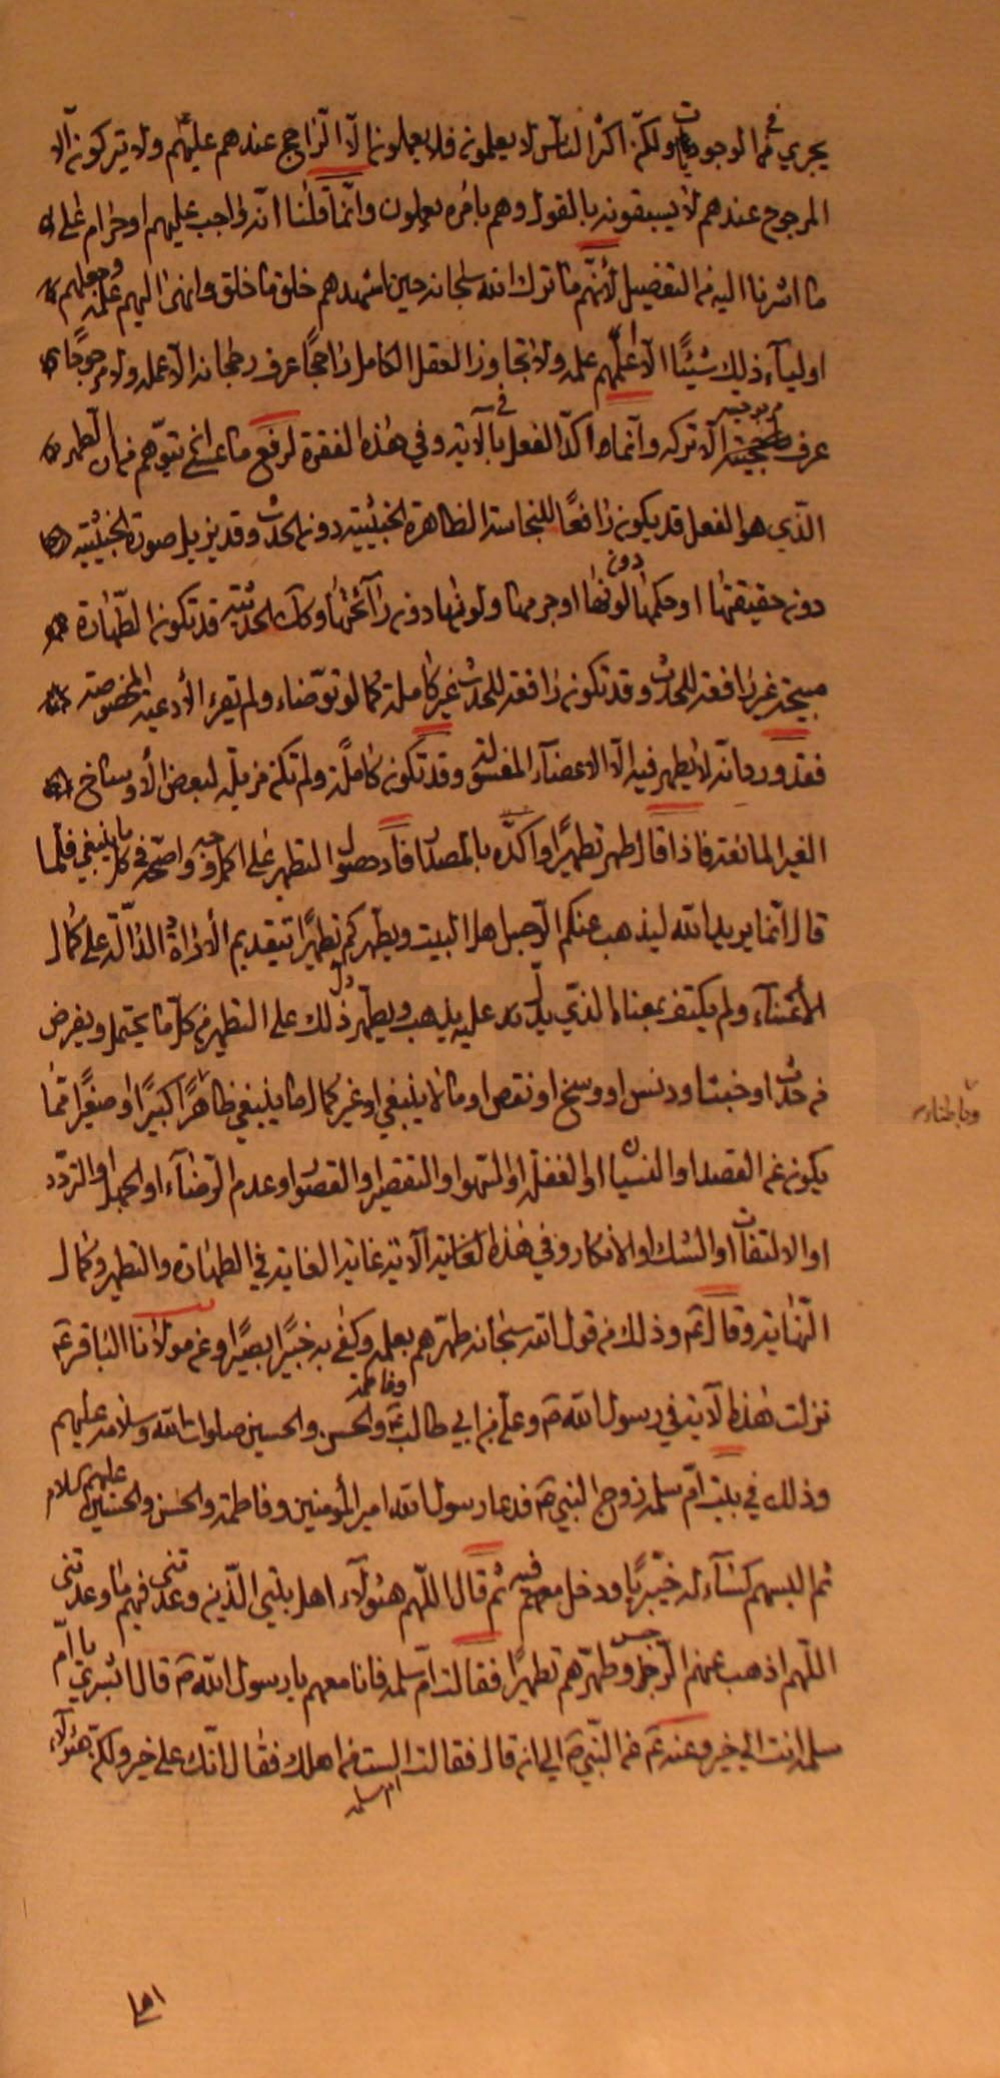 يجري في الموجودات ولكن اكثر الناس لا يعلمون فلا يعملون الا الراجح عندهم عليهم ولا يتركون الا
المرجوح عندهم لا يسبقونه بالقول وهم بامره يعملون وانما قلنا انه واجب عليهم او حرام على
ما اشرنا اليه من التفضيل لأنهم ما ترك الله سبحانه حين اشهدهم خلق ما خلق وانهى اليهم علمه وجعلهم
اولياء ذلك شيئًا الا علمهم علمه ولا يتجاوز العقل الكامل راجحًا عرف رجحانه الا عمله ولا مرجوحًا
عرف مرجوحيته الا تركه وانما اكد الفعل في الآية وفي هذه الفقرة لرفع ما عسى يتوهم من ان الطهر
الذي هو الفعل قد يكون رافعًا للنجاسة الظاهرة الخبثية دون الحدث وقد يزيل صورة الخبثية
دون حقيقتها او حكمها دون لونها او جرمها ولونها دون رائحتها وكذلك الحدثية قد تكون الطهارة
مبيحة غير رافعة للحدث وقد تكون رافعة للحدث غير كاملة كما لو توضاء ولم يقرء الأدعية المخصوصة
فقد ورد انه لا يطهر فيه الا الاعضاء المغسولة وقد تكون كاملة ولم تكن مزيلة لبعض الأوساخ
الغير المانعة فاذا قال طهر تطهيرًا واكده بالمصدر افاد حصول التطهر على اكمل وجه واصحه في كل ما ينبغي فلما
قال انما يريد الله ليذهب عنكم الرجس اهل البيت ويطهركم تطهيرًا بتقديم الأداة الدالة على كمال
الأعتناء ولم يكتف بمعناه الذي يدل عليه يذهب ويطهر دل ذلك على التطهير من كل ما يحتمل ويفرض
من حدث او خبث او دنس او وسخ او نقص او ما لا ينبغي او غير كمال ما ينبغي ظاهرًا كبيرًا او صغيرًا مما
وباطنا
يكون عن القصد او النسيان او الغفلة او السهو او التقصير او القصور او عدم الرضاء او الجهل او التردد
او الالتفات او الشك او الانكار وفي هذه الغاية الآية غاية الغاية في الطهارة والتطهر وكمال
النهاية وقال ثم وذلك من قول الله سبحانه طهرهم بعلمه وكفى به خبيرًا بصيرًا وعن مولانا الباقر ع
نزلت هذه الآية في رسول الله ص وعلي بن ابي طالب ع وفاطمة والحسن والحسين صلوات الله وسلامه عليهم
وذلك في بيت ام سلمة زوج النبي ص فدعا رسول الله امير المؤمنين وفاطمة والحسن والحسين عليهم السلام
ثم البسهم كساء له خيبريا ودخل معهم فيه ثم قال اللهم هؤلاء اهل بيتي الذين وعدتني فيهم ما وعدتني
اللهم اذهب عنهم الرجس وطهرهم تطهيرًا فقالت ام سلمة فانا معهم يا رسول الله ص قال ابشري يا ام
سلمة انت الى خير وعنه ع عن النبي ص الى ان قال فقالت ام سلمة الست من اهلك فقال انك على خير ولكن هؤلاء